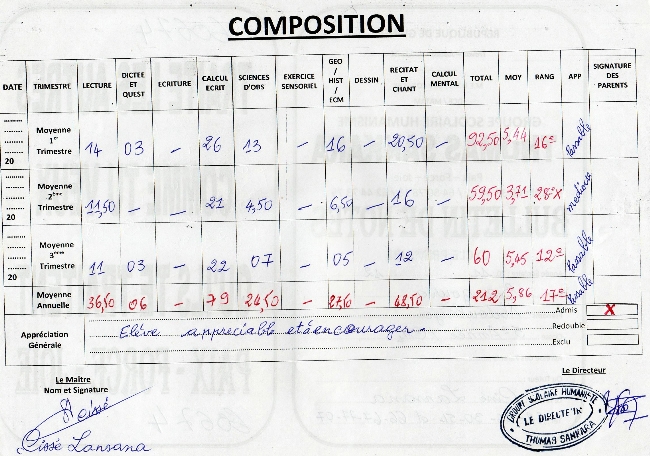 COMPOSITION
DATE TRIMESTRE LECTURE DICTEE ET QUEST ECRITURE CALCUL ECRIT SCIENCES D'OBS EXERCICE SENSORIEL GEO / HIST / ECM DESSIN RECITAT ET CHANT CALCUL MENTAL TOTAL MOY RANG APP SIGNATURE DES PARENTS
20 Moyenne 1er Trimestre 14 03 - 26 13 - 16 - 20,50 - 92,50 5,44 16e Passable
20 Moyenne 2ème Trimestre 11,50 - - 21 4,50 - 6,50 - 16 - 59,50 3,71 28ex
20 Moyenne 3ème Trimestre 11 03 - 22 07 - 05 - 12 - 60 5,45 12e Passable
Moyenne Annuelle 36,50 06 - 79 24,50 - 27,50 - 48,50 - 212 5,86 17e Passable
Admis X
Appréciation Générale Elève appreciable et à encourager.
Redouble
Exclu
Le Maître
Nom et Signature
Cissé Lansana
Le Directeur
GROUPE SCOLAIRE HUMANISTE
LE DIRECTEUR
THOMAS SANKARA